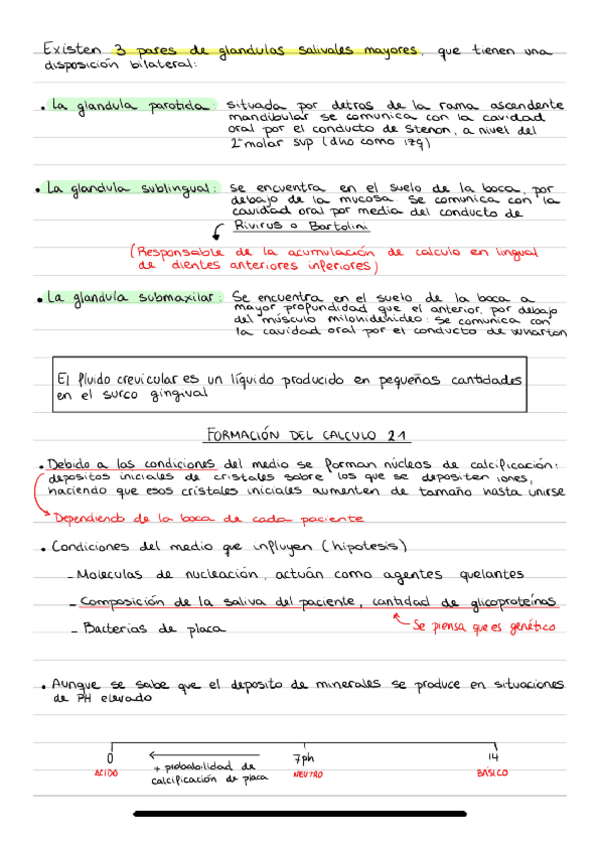 Existen 3 pares de glandulas salivales mayores, que tienen una
disposición bilateral:
• La glandula parotida: situada por detros de la rama ascendente
mandibular se comunica con la cavidad
oral por el conducto de Stenon, a nivel del
2º molar sup (dho como 17g)
• La glandula sublingual: se encuentra en el suelo de la boca, por
debajo de la mucosa. Se comunica con la
cavidad oral por media del conducto de
Rivirus o Bartolini
(Responsable de la acumulación de calculo en lingual
de dientes anteriores inferiores)
• La glandula submaxilar: Se encuentra en el suelo de la boca a
mayor profundidad que el anterior, por debajo
del músculo milohidehideo. Se comunica con
la cavidad oral por el conducto de Wharton
El fluido crevicular es un líquido producido en pequeñas cantidades
en el surco gingival
FORMACIÓN DEL CALCULO 21
• Debido a las condiciones del medio se forman núcleos de calcificación:
depositos iniciales de cristales sobre los que se depositen iones,
haciendo que esos cristales iniciales aumenten de tamaño hasta unirse
Dependiendo de la boca de cada paciente
• Condiciones del medio que influyen (hipotesis)
- Moleculas de nucleación, actuán como agentes quelantes
- Composición de la saliva del paciente, cantidad de glicoproteínas
Se piensa que es genético
- Bacterias de placa
• Aunque se sabe que el deposito de minerales se produce en situaciones
de PH elevado
0 7ph 14
ACIDO + probabilidad de NEUTRO BÁSICO
calcificación de placa